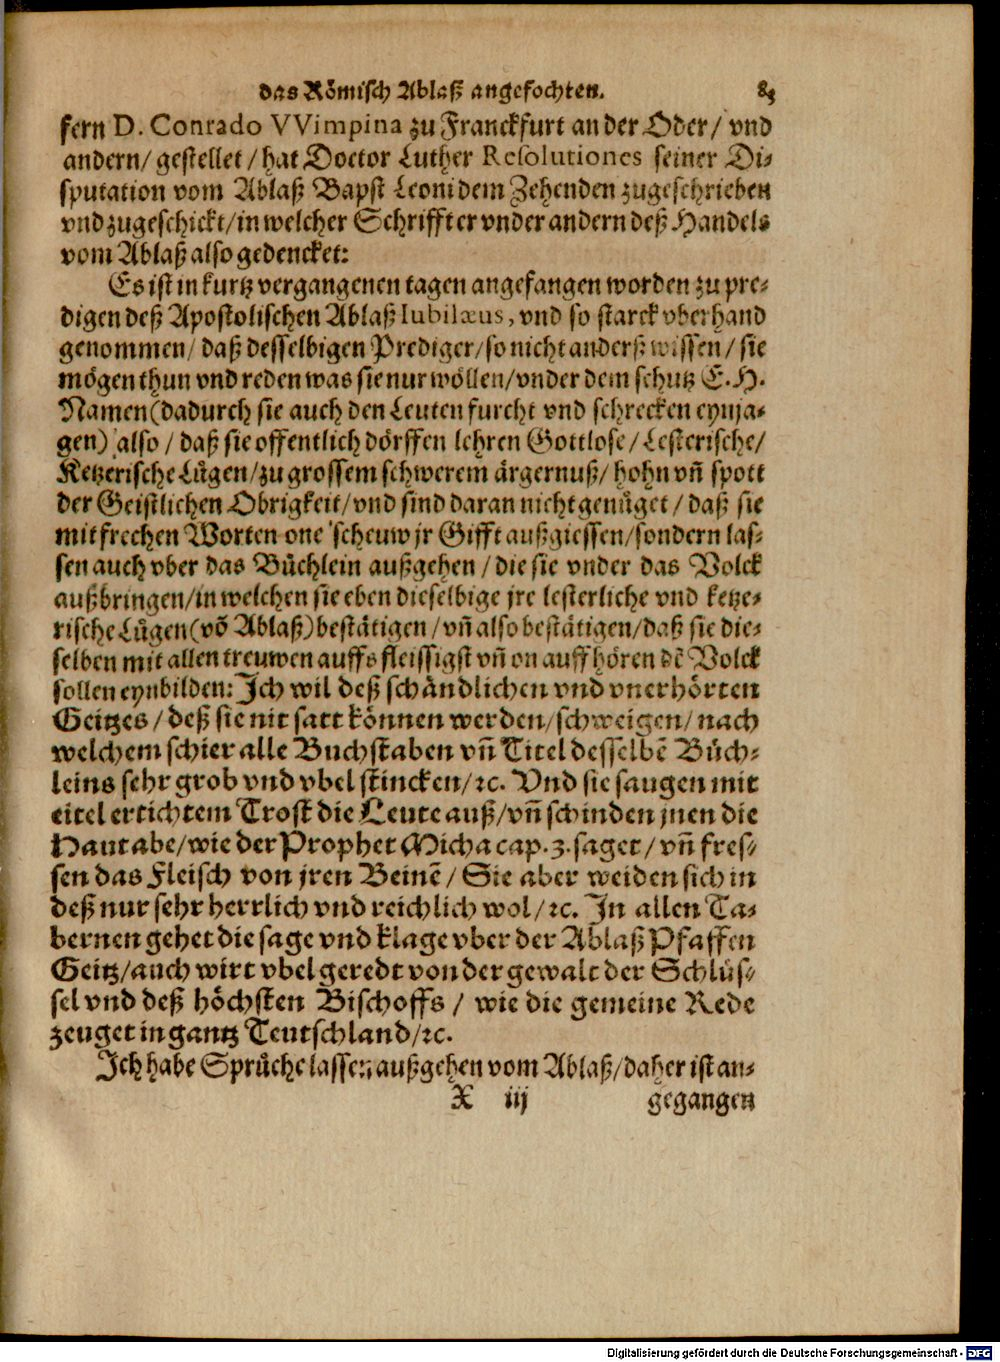 das Römisch Ablaß angefochten.
fern D. Conrado VVimpina zu Franckfurt an der Oder/ vnd
andern/ gestellet/ hat Doctor Luther Resolutiones seiner Di-
sputation vom Ablaß Bapst Leoni dem Zehenden zugeschrieben
vnd zugeschickt/ in welcher Schrifft er vnder andern deß Handels
vom Ablaß also gedencket:
Es ist in kurtz vergangenen tagen angefangen worden zu pre-
digen deß Apostolischen Ablaß Iubilæus, vnd so starck vberhand
genommen/ daß desselbigen Prediger/ so nicht anderß wissen/ sie
mögen thun vnd reden was sie nur wöllen/ vnder dem schutz E. H.
Namen (dadurch sie auch den Leuten furcht vnd schrecken eynja-
gen) also/ daß sie offentlich dörffen lehren Gottlose/ Lesterische/
Ketzerische Lůgen/ zu grossem schwerem ärgernuß/ hohn vñ spott
der Geistlichen Obrigkeit/ vnd sind daran nicht genůget/ daß sie
mit frechen Worten one scheuw jr Gifft außgiessen/ sondern las-
sen auch vber das Bůchlein außgehen/ die sie vnder das Volck
außbringen/ in welchen sie eben dieselbige jre lesterliche vnd ketze-
rische Lůgen (võ Ablaß) bestätigen/ vñ also bestätigen/ daß sie die-
selben mit allen treuwen auffs fleissigst vñ on auffhören dẽ Volck
sollen eynbilden: Ich wil deß schändlichen vnd vnerhörten
Geitzes/ deß sie nit satt können werden/ schweigen/ nach
welchem schier alle Buchstaben vñ Titel desselbẽ Bůch-
leins sehr grob vnd vbel stincken/ ꝛc. Vnd sie saugen mit
eitel ertichtem Trost die Leute auß/ vñ schinden jnen die
Haut abe/ wie der Prophet Micha cap. 3. saget/ vñ fres-
sen das Fleisch von jren Beinẽ/ Sie aber weiden sich in
deß nur sehr herrlich vnd reichlich wol/ ꝛc. In allen Ta-
bernen gehet die sage vnd klage vber der Ablaß Pfaffen
Geitz/ auch wirt vbel geredt von der gewalt der Schlůs-
sel vnd deß höchsten Bischoffs/ wie die gemeine Rede
zeuget in gantz Teutschland/ ꝛc.
Ich habe Sprůche lassen außgehen vom Ablaß/ daher ist an-
X iij gegangen
Digitalisierung gefördert durch die Deutsche Forschungsgemeinschaft - DFG